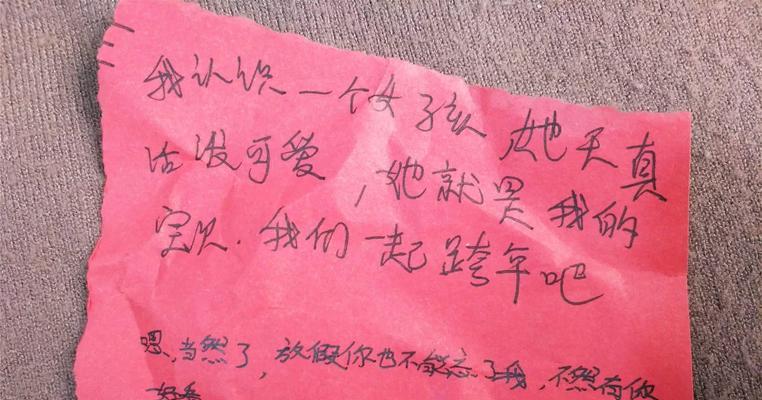 我认识一个女孩,她天真
活泼可爱,她就是我的
宝贝.我们一起跨年吧
恩,当然了,放假你也不能忘了我,不然有你
好看